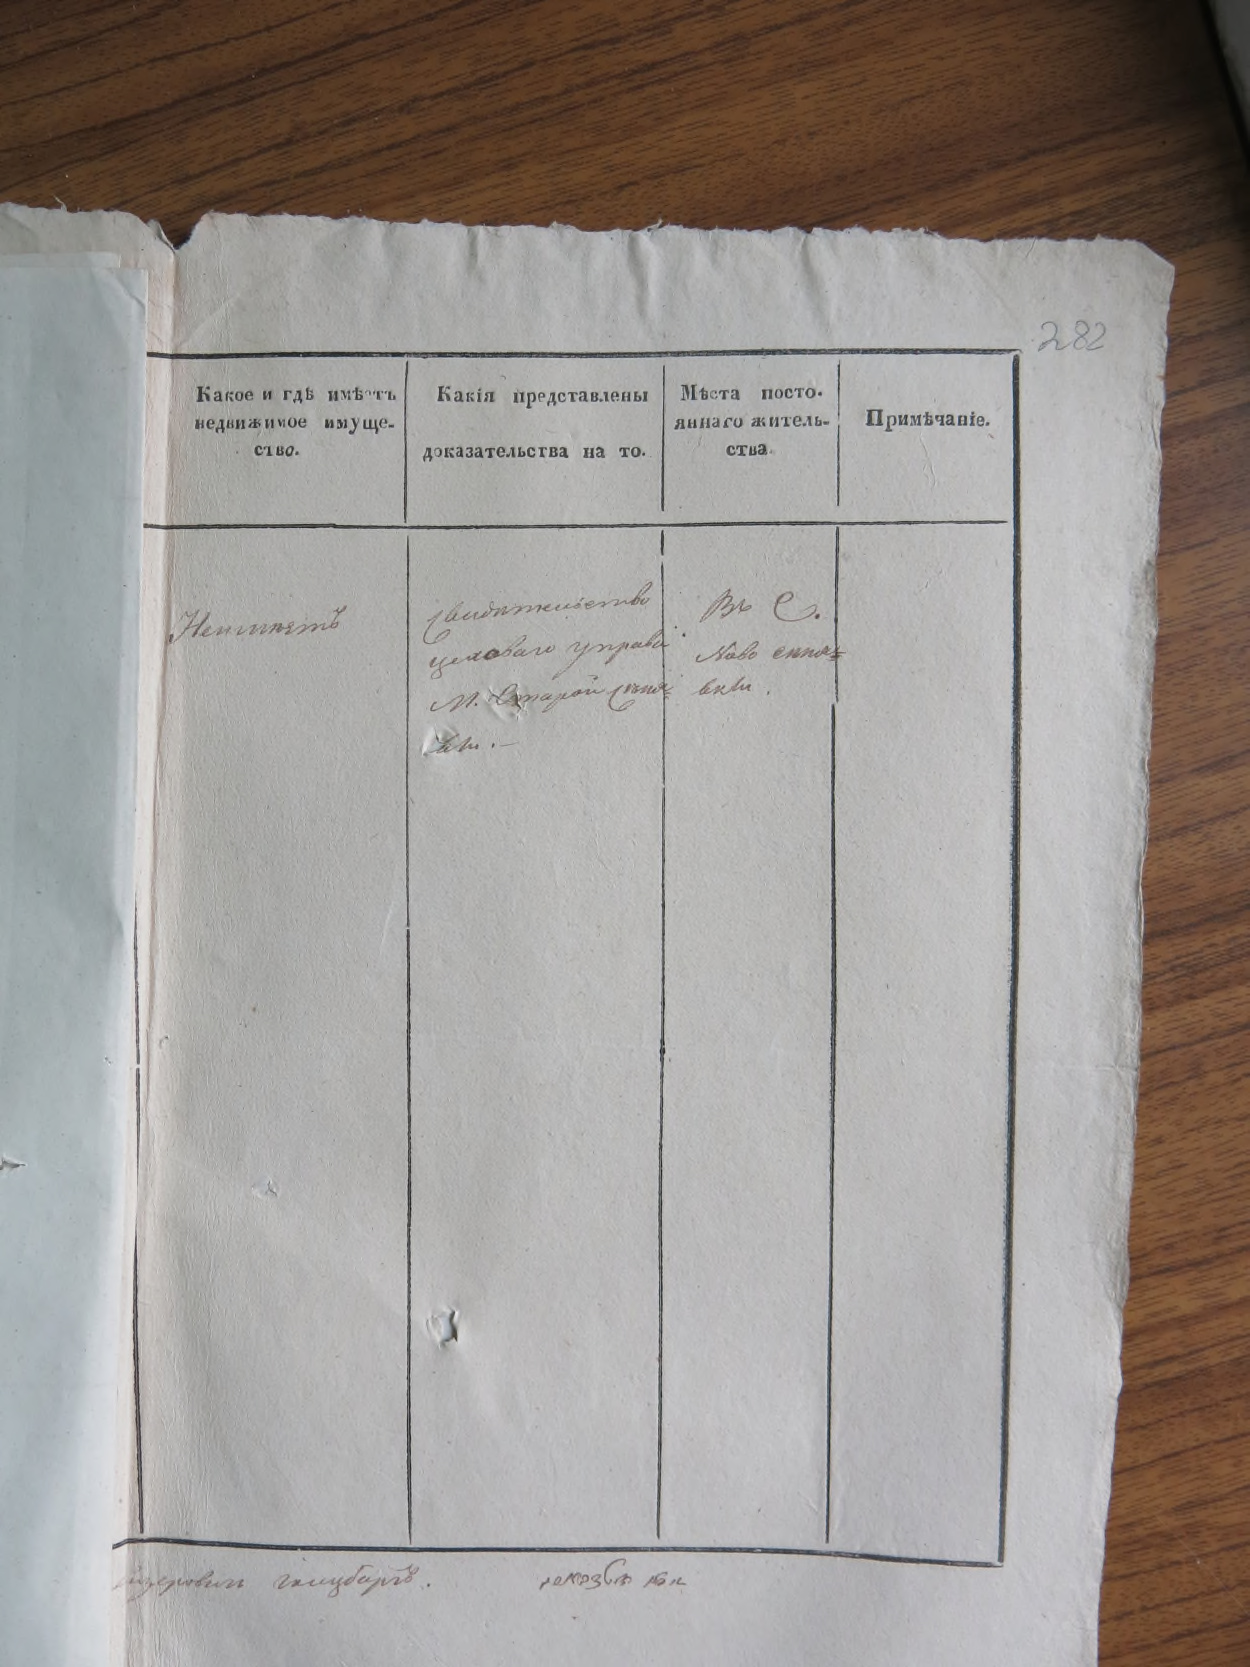 282
Какое и гдѣ имѣетъ
недвижимое имуще-
ство.
Какія представлены
доказательства на то.
Мѣста посто-
яннаго житель-
ства.
Примѣчаніе.
Неимѣетъ
Свидѣтельство
цеховаго управ
М. Старой Синя-
вки.–
Въ С.
Ново синя=
вки.